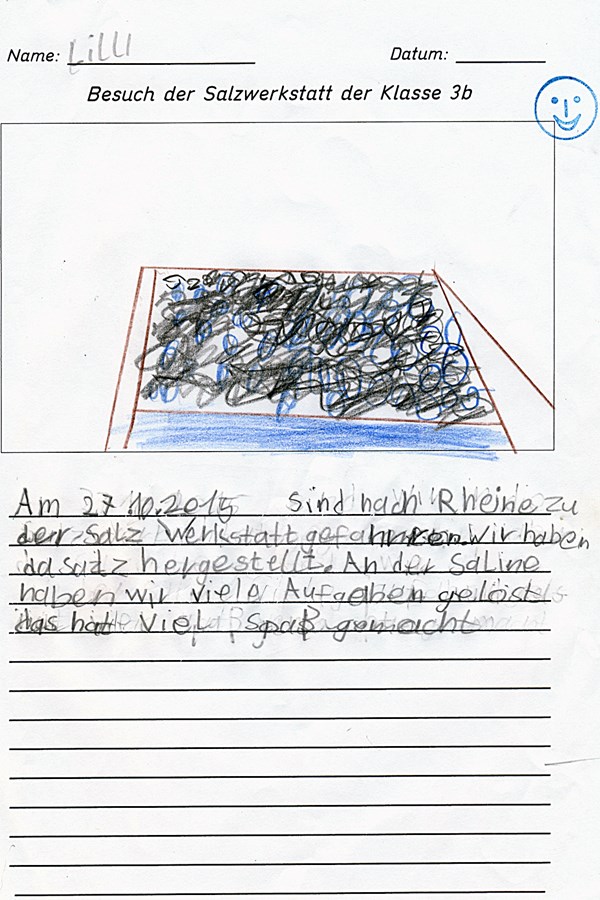 Name: Lilli
Datum:
Besuch der Salzwerkstatt der Klasse 3b
Am 27.10.2015 sind nach Rheine zu
der Salz Werkstatt gefahren. Wir haben
da salz hergestellt. An der Saline
haben wir viele Aufgaben gelöst
das hat viel Spaß gemacht